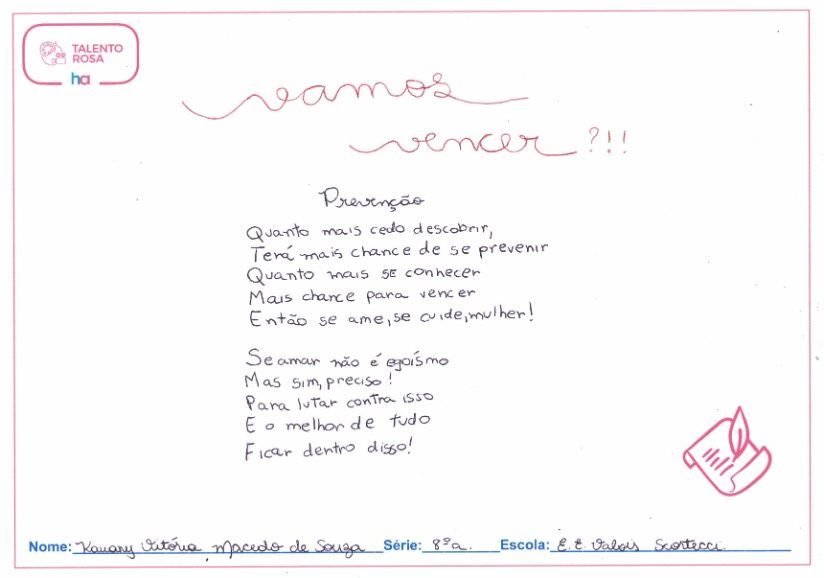 TALENTO
ROSA
ha
vamos
vencer?!!
Prevenção
Quanto mais cedo descobrir,
Terá mais chance de se prevenir
Quanto mais se conhecer
Mais chance para vencer
Então se ame, se cuide, mulher!
Se amar não é egoísmo
Mas sim, preciso!
Para lutar contra isso
E o melhor de tudo
Ficar dentro disso!
Nome: Kauany Vitória Macedo de Souza Série: 8ºa. Escola: E.E. Valois Scortecci.